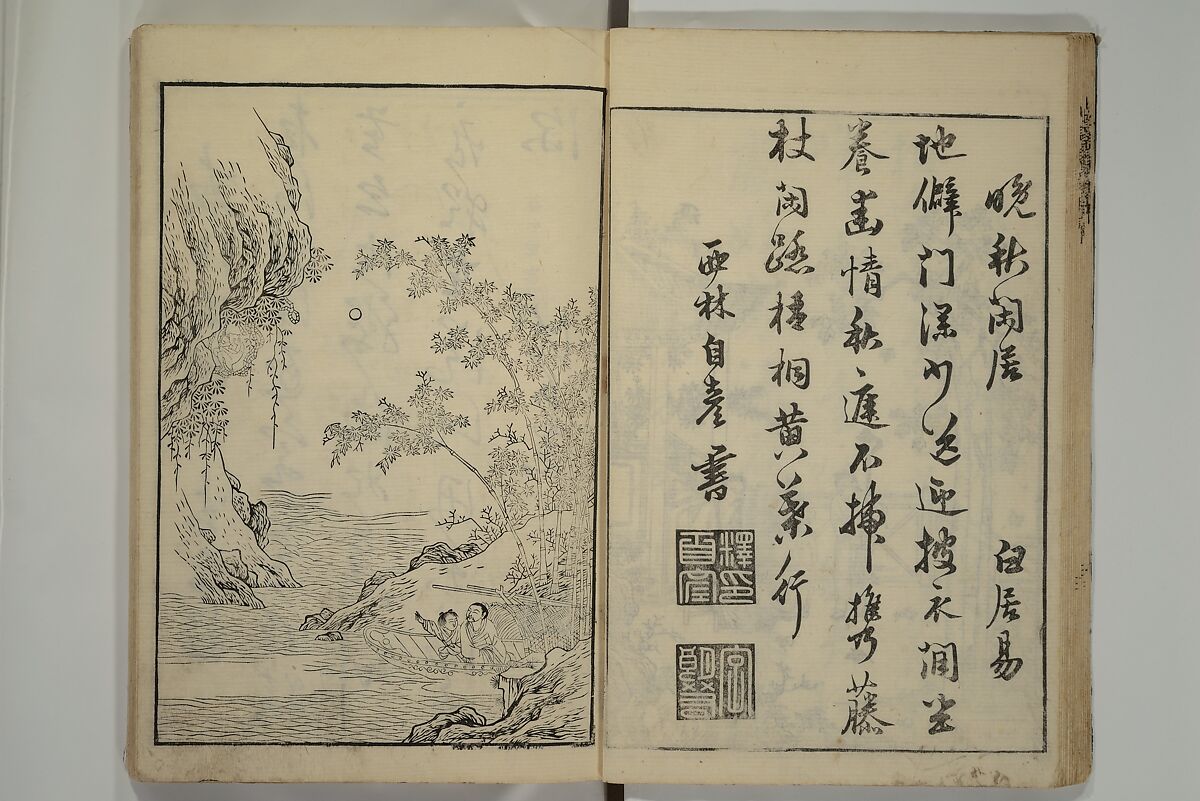 晚秋閑居　白居易
地僻門深少送迎披衣閑坐
養幽情秋庭不掃攜藤
杖閑踏梧桐黃葉行
西林自彥書